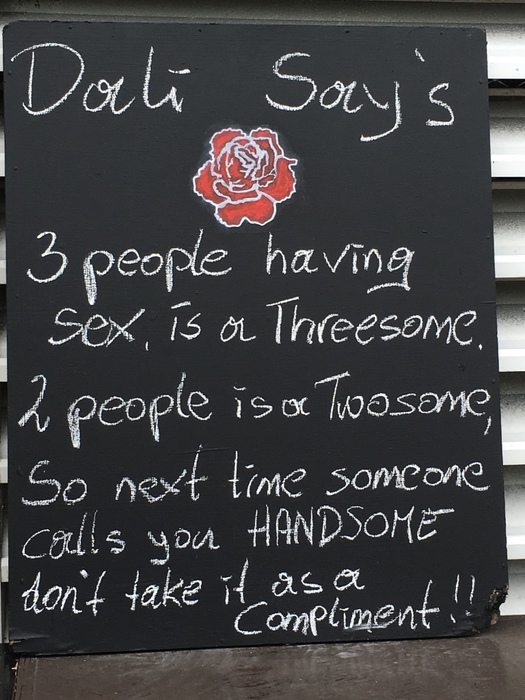 Dali Say's
3 people having
sex, is a Threesome.
2 people is a Twosome,
So next time someone
calls you HANDSOME
don't take it as a
Compliment!!